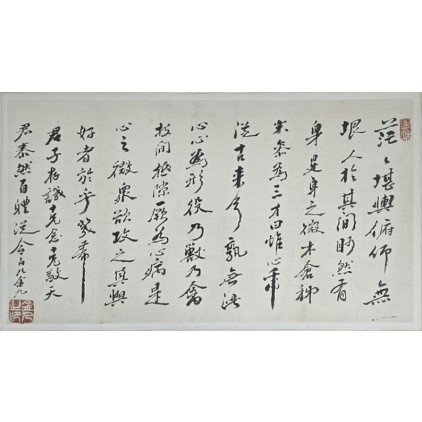 茫〻堪輿俯仰無
垠人於其間眇然有
身是身之微太倉稊
米參爲三才曰惟心耳
往古來今孰無此
心心爲形役乃獸乃禽
投間抵隙爲心病
心之微衆欲攻之其與
者於乎幾希
君子存誠克念克敬天
君泰然百體從令